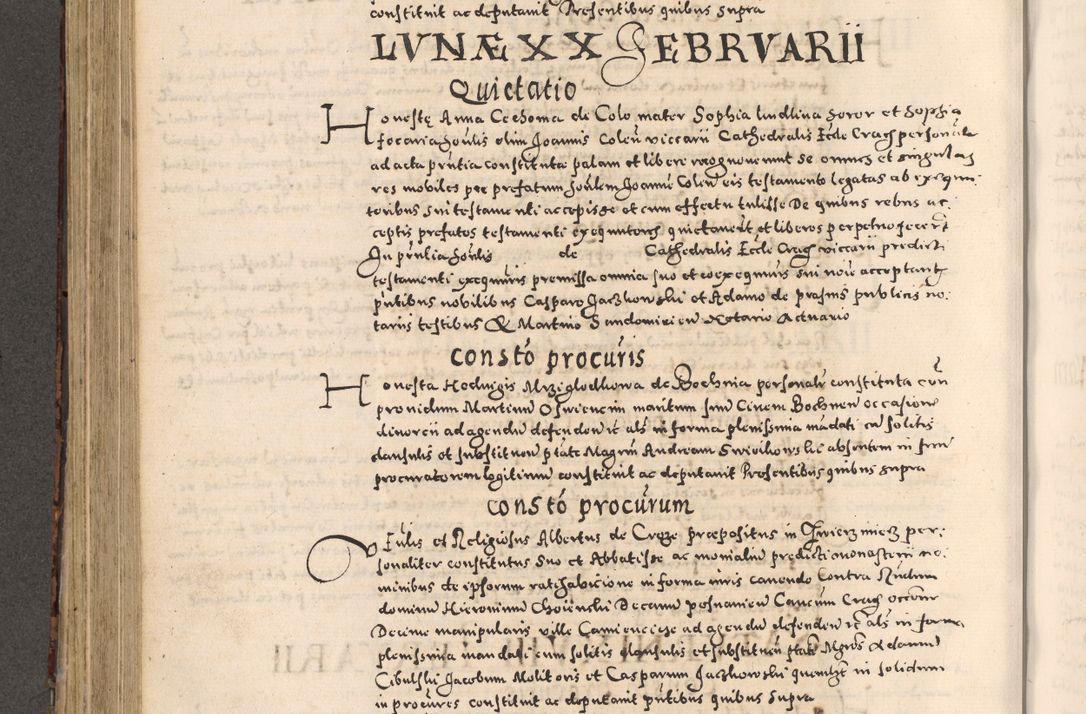 constituit ac deputavit Presentibus quibus supra
LVNÆ XX FEBRVARII
Quietatio
Honestę Anna Cechoma de Colo mater Sophia lindlina soror et Sophia
focaria hõnlis olim Joannis Colen viccarii Cathedralis Ecclē Cracẜ personalr
ad acta pñtia constitutæ palam et libere recognoverunt se omnes et singulas
res mobiles per prefatum hõnlem Joannē Colen eis testamento legatas ab exequu:
toribus sui testamenti accepisse et cum effectu tulisse De quibus rebus ac:
ceptis prefatos testamenti exequutores quietaverūt et liberos perpetuo fecerūt
In pñtia hõnlis de Cathedralis Ecclē Cracẜ viccarii predicti
testamenti exequūris premissa omnia suo et coexequūris sui noīe acceptantꝭ
pñtibus nobilibus Casparo Jaczkowski et Adamo de prasnis publicis no:
tariis testibus & Martino Sandomirien Notario Actuario
constõ procuris
Honesta Hedvigis Mrziglodkowa de Bochnia personalr constituta cōn
providum Martinum Oswiencim maritum suū Civem Bochnen occasione
divorcii ad agendū defendenᵈ ꝛc als in forma plenissima mādati cū solitis
clausulis et substituen ptāte Magrūm Andream Swidowski absentem in suū
procuratorem legitimum constituit ac deputavit Presentibus quibus supra
constõ procurum
Vēnlis et Religiosus Albertus de præpositus in per:
sonaliter constitutus suo et Abbatisse ac monialiū predicti monasterii no:
minibus de ipsorum ratihabicione in forma iuris cavendo Contra Rndum
dominū Hieronimū Choienski Decanū posnanien Canᶜum Cracẜ occone
Decime manipularis ville Camienciege ad agendū defendenᵈ ꝛc als in forma
plenissima mandati cum solitis clausulis et substituen ptāte Mgros Adamū
Cibulski Jacobum Molitoris et Casparum Jaczkowski quemlꝫt in solidum
in procures constituit ac deputavit pñtibus quibus supra